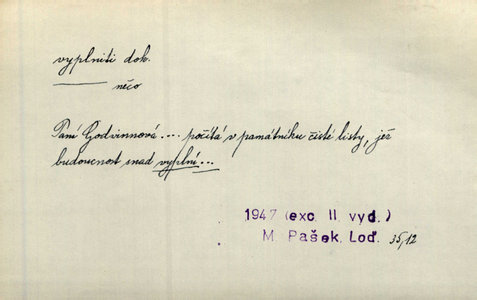 vyplniti dok.
něco
Paní Godvinnová ... počítá v památníku čisté listy, jež
budoucnost snad vyplní...
1947 (exc. II. vyd.)
M. Pašek, Loď. 35,12